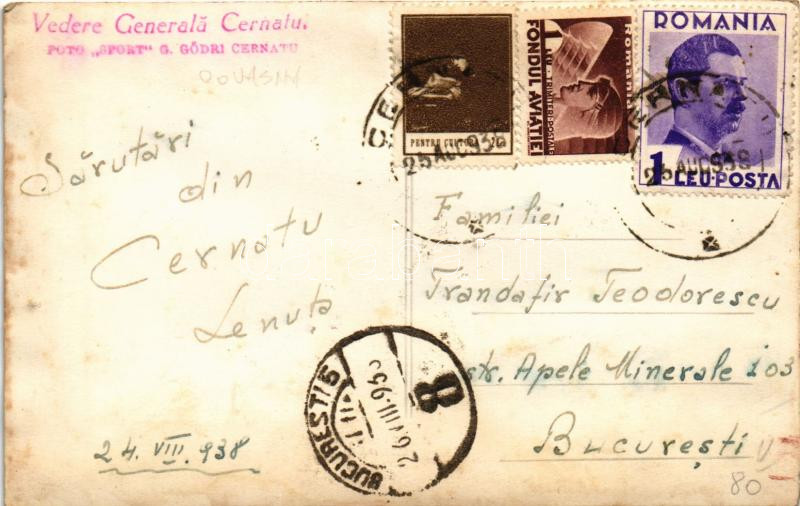 Vedere Generală Cernatu.
FOTO „SPORT" G. GÖDRI CERNATU
Sărutări
din
Cernatu
Lenuța
24. VIII. 938
PENTRU CULTURĂ
1 LEU - TRIMITERI-POSTALE
România
FONDUL AVIAȚIEI
ROMANIA
1 LEU·POSTA
25 AUG 938
25 AUG 938
Familiei
Trandafir Teodorescu
str. Apele Minerale 103
București
BUCUREȘTI
26 VIII 938
8
80